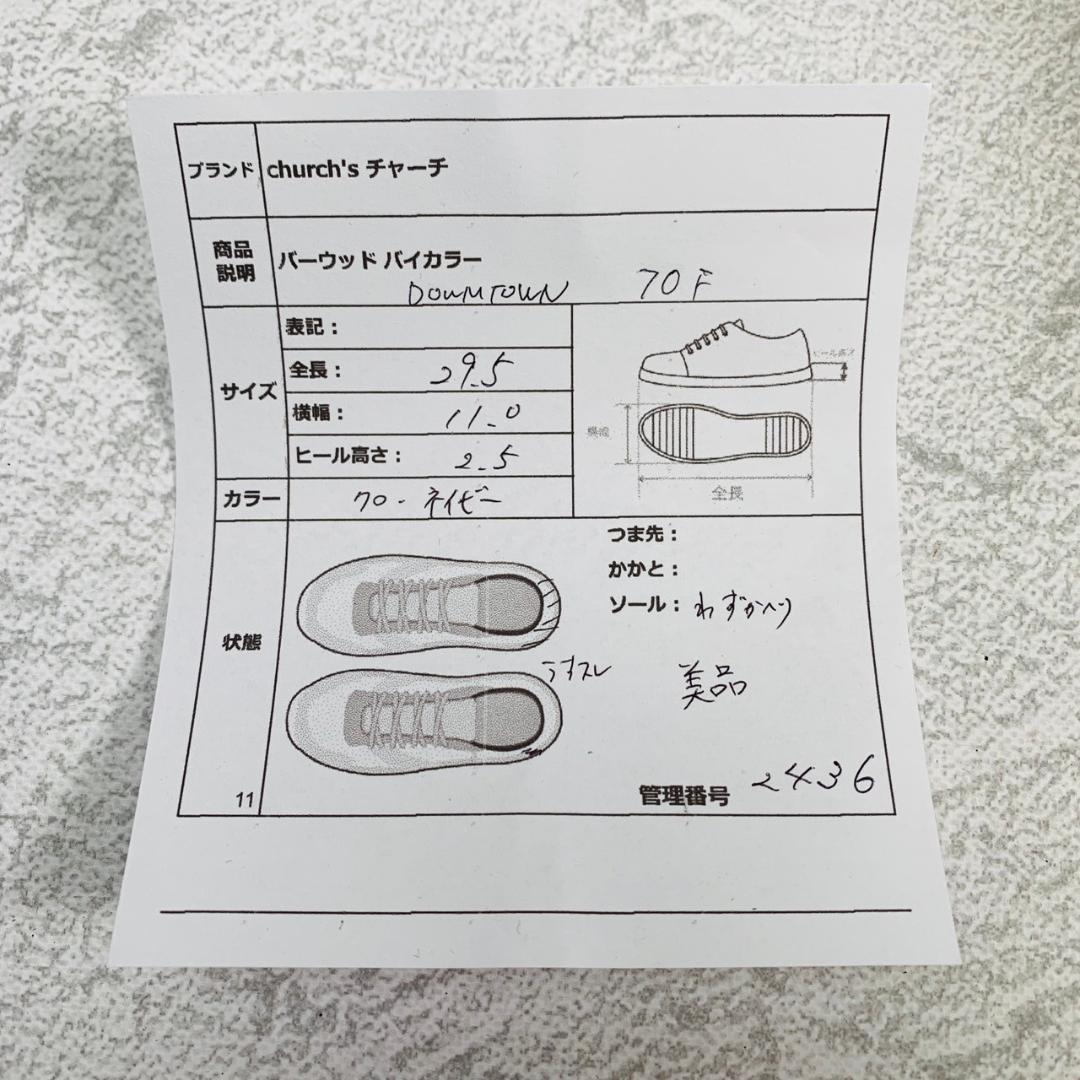 ブランド church's チャーチ
商品説明 バーウッド バイカラー
DOWNTOWN 70F
サイズ
表記：
全長： 29.5
横幅： 11.0
ヒール高さ： 2.5
ヒール高さ
全長
カラー クロ・ネイビー
状態
つま先：
かかと：
ソール： わずかヘリ
うすスレ
美品
11
管理番号 2436